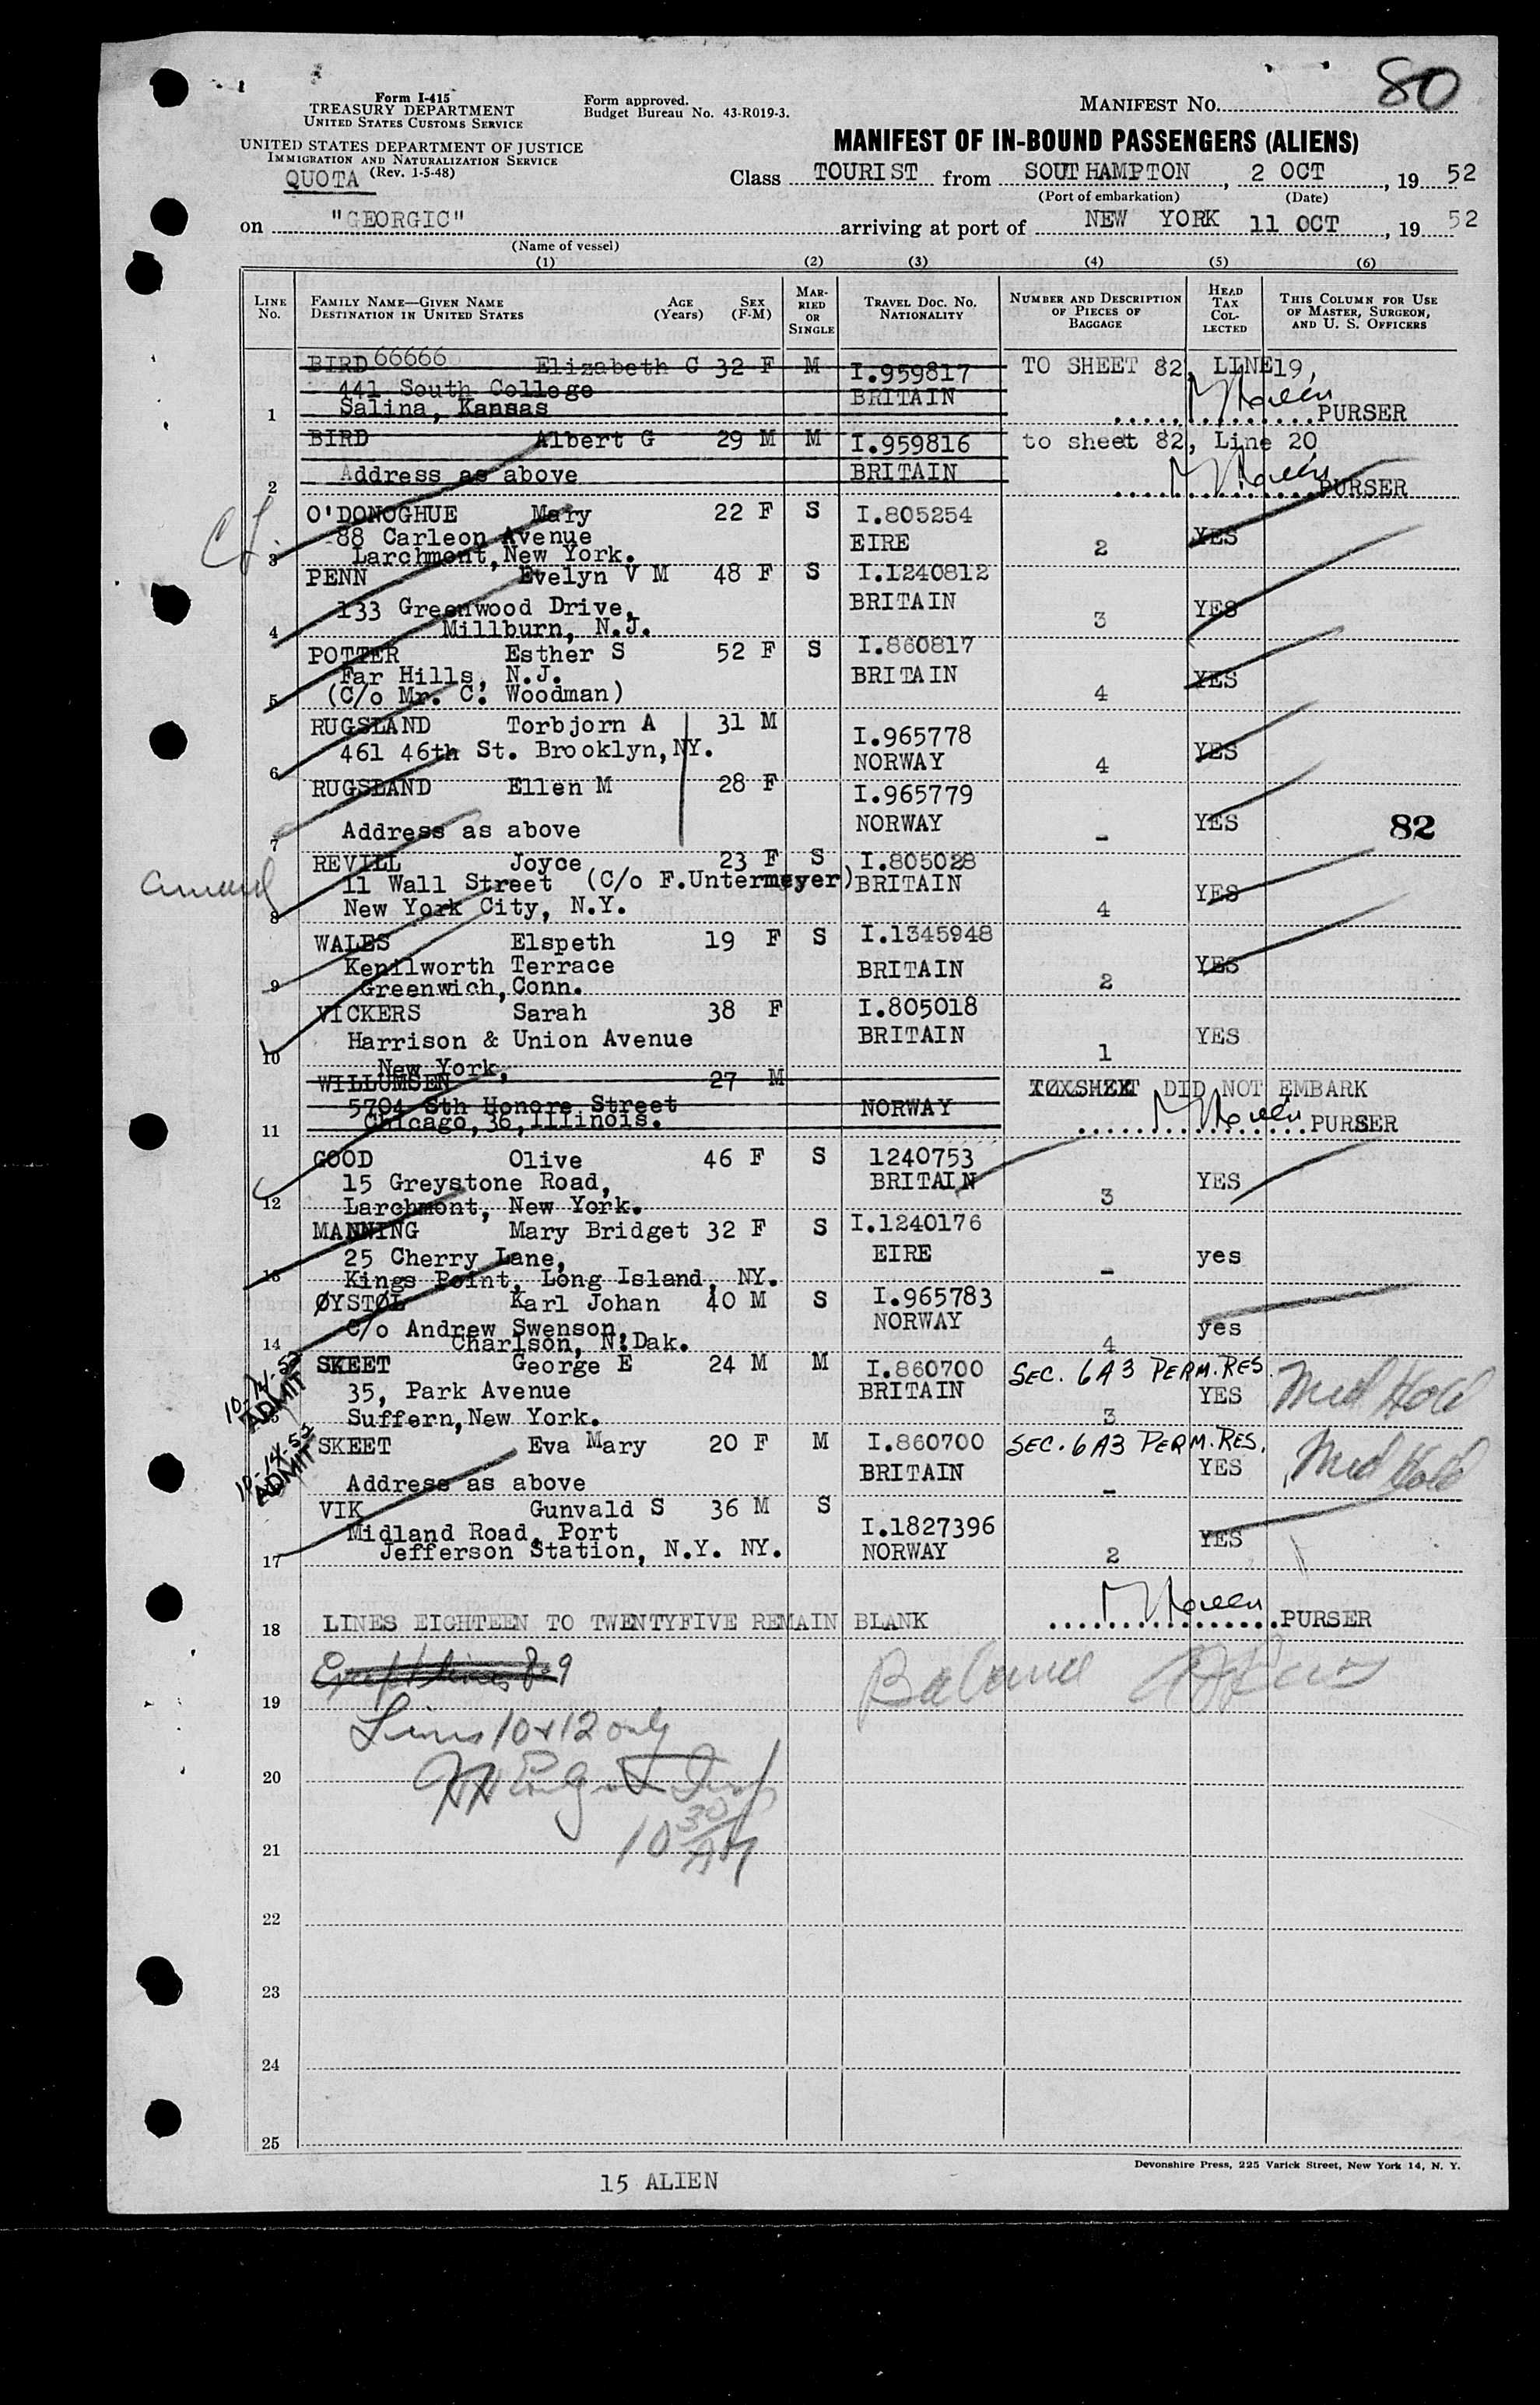 80
Form I-415
TREASURY DEPARTMENT
UNITED STATES CUSTOMS SERVICE
Form approved.
Budget Bureau No. 43-R019-3.
MANIFEST NO.
UNITED STATES DEPARTMENT OF JUSTICE
IMMIGRATION AND NATURALIZATION SERVICE
(Rev. 1-5-48)
QUOTA
MANIFEST OF IN-BOUND PASSENGERS (ALIENS)
Class TOURIST from SOUTHAMPTON, 2 OCT, 19 52
(Port of embarkation) (Date)
on "GEORGIC" arriving at port of NEW YORK 11 OCT, 19 52
(Name of vessel)
(1) (2) (3) (4) (5) (6)
LINE No. FAMILY NAME—GIVEN NAME DESTINATION IN UNITED STATES AGE (Years) SEX (F-M) MARRIED OR SINGLE TRAVEL DOC. NO. NATIONALITY NUMBER AND DESCRIPTION OF PIECES OF BAGGAGE HEAD TAX COLLECTED THIS COLUMN FOR USE OF MASTER, SURGEON, AND U. S. OFFICERS
BIRD 66666 Elizabeth C 32 F M I.959817 TO SHEET 82, LINE 19,
441 South College BRITAIN
1 Salina, Kansas PURSER
BIRD Albert G 29 M M I.959816 to sheet 82, Line 20
Address as above BRITAIN
2 PURSER
O'DONOGHUE Mary 22 F S I.805254
88 Carleon Avenue EIRE 2 YES
3 Larchmont, New York.
PENN Evelyn V M 48 F S I.1240812
133 Greenwood Drive, BRITAIN 3 YES
4 Millburn, N.J.
POTTER Esther S 52 F S I.860817
Far Hills, N.J. BRITAIN 4 YES
5 (C/o Mr. C. Woodman)
RUGSLAND Torbjorn A 31 M I.965778
461 46th St. Brooklyn, NY. NORWAY 4 YES
6
RUGSLAND Ellen M 28 F I.965779
Address as above NORWAY - YES 82
7
REVILL Joyce 23 F S I.805028
11 Wall Street (C/o F.Untermeyer) BRITAIN YES
8 New York City, N.Y. 4
WALES Elspeth 19 F S I.1345948
Kenilworth Terrace BRITAIN 2 YES
9 Greenwich, Conn.
VICKERS Sarah 38 F I.805018
Harrison & Union Avenue BRITAIN 1 YES
10 New York,
WILLUMSEN 27 M DID NOT EMBARK
5704 Sth Honore Street NORWAY
11 Chicago, 36, Illinois. PURSER
GOOD Olive 46 F S 1240753
15 Greystone Road, BRITAIN 3 YES
12 Larchmont, New York.
MANNING Mary Bridget 32 F S I.1240176
25 Cherry Lane, EIRE - yes
13 Kings Point, Long Island, NY.
ØYSTØL Karl Johan 40 M S I.965783
C/o Andrew Swenson, NORWAY yes
14 Charlson, N.Dak. 4
10-14-52 ADMIT SKEET George E 24 M M I.860700 SEC. 6A3 PERM. RES.
35, Park Avenue BRITAIN YES Med Hold
Suffern, New York. 3
10-14-52 ADMIT SKEET Eva Mary 20 F M I.860700 SEC. 6A3 PERM. RES.
Address as above BRITAIN - YES Med Hold
VIK Gunvald S 36 M S
Midland Road, Port I.1827396 YES
17 Jefferson Station, N.Y. NY. NORWAY 2
18 LINES EIGHTEEN TO TWENTYFIVE REMAIN BLANK PURSER
Except lines 8-9 Balance
19
Lines 10 & 12 only
20
10 30/AM
21
22
23
24
25
Devonshire Press, 225 Varick Street, New York 14, N. Y.
15 ALIEN